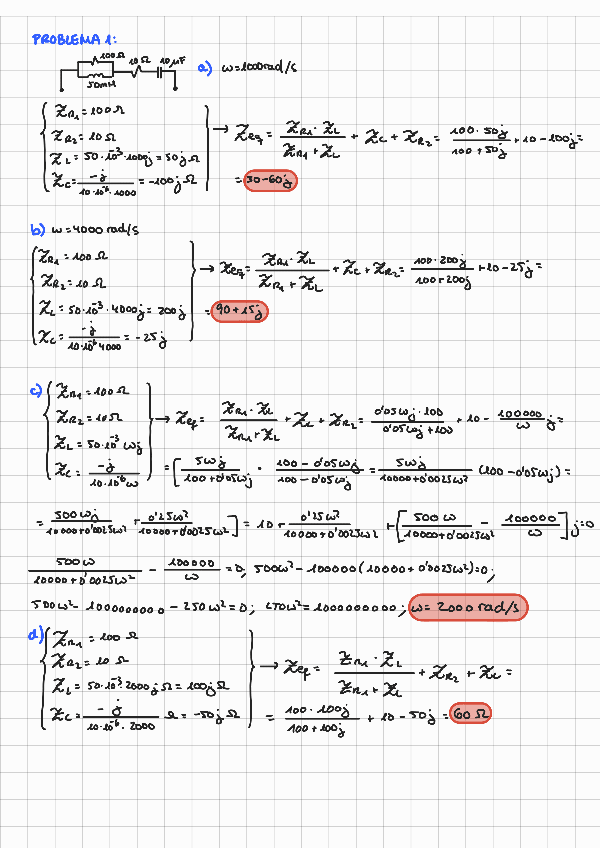 PROBLEMA 1:
100Ω 10Ω 10μF
50mH
a) ω=1000rad/s
Z_R1 = 100Ω
Z_R2 = 10Ω
Z_L = 50·10^-3·1000j = 50jΩ
Z_C = -j / (10·10^-6·1000) = -100jΩ
→ Z_eq = (Z_R1·Z_L)/(Z_R1+Z_L) + Z_C + Z_R2 = (100·50j)/(100+50j) + 10 - 100j =
= 30-60j
b) ω=4000 rad/s
Z_R1 = 100 Ω
Z_R2 = 10 Ω
Z_L = 50·10^-3·4000j = 200j
Z_C = -j / (10·10^-6 4000) = -25j
→ Z_eq = (Z_R1·Z_L)/(Z_R1+Z_L) + Z_C + Z_R2 = (100·200j)/(100+200j) + 10 - 25j =
= 90+15j
c) Z_R1 = 100 Ω
Z_R2 = 10Ω
Z_L = 50·10^-3 ωj
Z_C = -j / (10·10^-6 ω)
→ Z_eq = (Z_R1·Z_L)/(Z_R1+Z_L) + Z_C + Z_R2 = (0'05ωj·100)/(0'05ωj+100) + 10 - (100000/ω) j =
= [ 5ωj/(100+0'05ωj) · (100-0'05ωj)/(100-0'05ωj) = 5ωj/(10000+0'0025ω²) (100-0'05ωj) =
= 500ωj/(10000+0'0025ω²) + 0'25ω²/(10000+0'0025ω²) ] = 10 + 0'25ω²/(10000+0'0025ω²) + [ 500ω/(10000+0'0025ω²) - 100000/ω ] j=0
500ω/(10000+0'0025ω²) - 100000/ω = 0; 500ω² - 100000(10000+0'0025ω²)=0;
500ω² - 1000000000 - 250ω² = 0; 250ω² = 1000000000; ω = 2000 rad/s
d) Z_R1 = 100 Ω
Z_R2 = 10 Ω
Z_L = 50·10^-3·2000j Ω = 100jΩ
Z_C = -j / (10·10^-6·2000) Ω = -50jΩ
→ Z_eq = (Z_R1·Z_L)/(Z_R1+Z_L) + Z_R2 + Z_C =
= (100·100j)/(100+100j) + 10 - 50j = 60 Ω